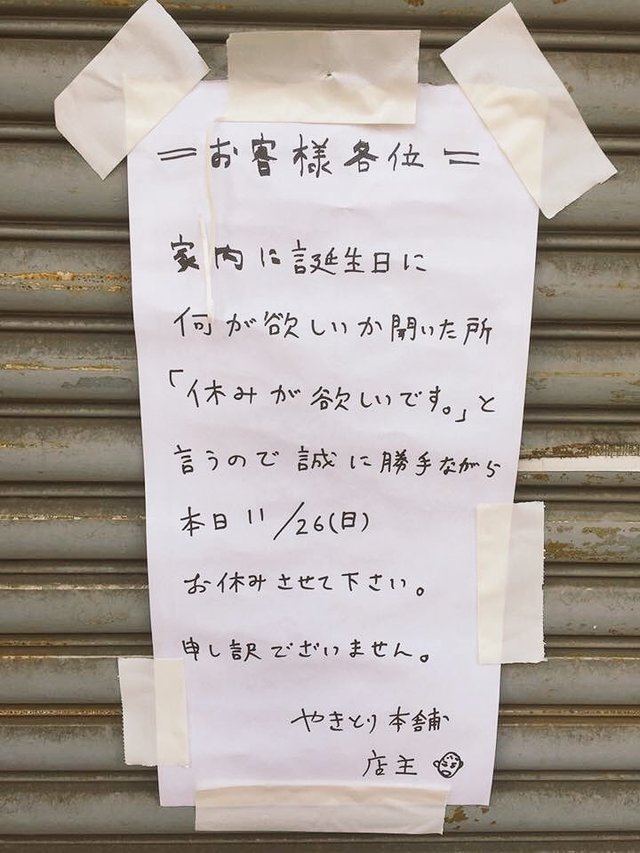 =お客様各位=
家内に誕生日に
何が欲しいか聞いた所
「休みが欲しいです。」と
言うので誠に勝手ながら
本日11/26(日)
お休みさせて下さい。
申し訳でざいません。
やきとり本舗
店主